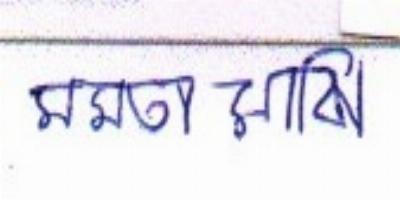 মমতা মাঝি